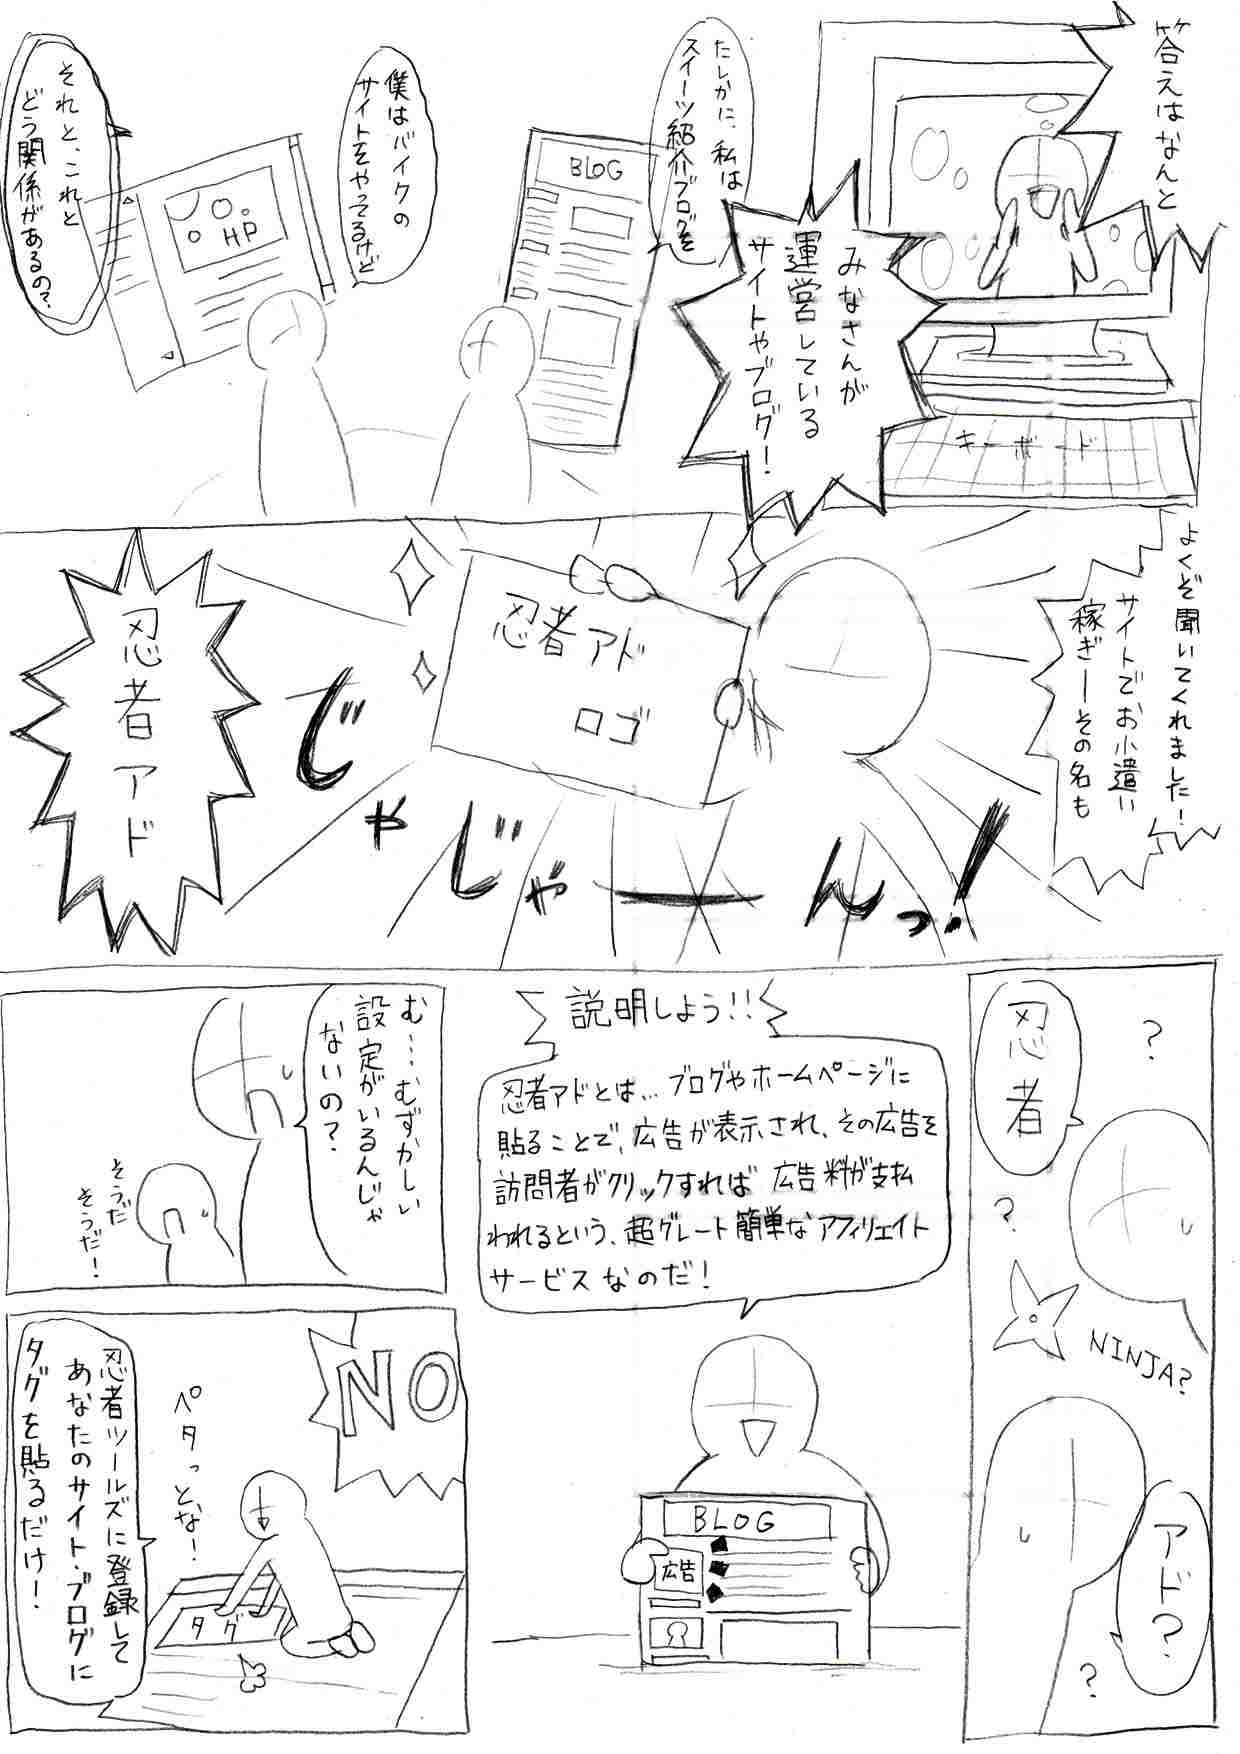 答えはなんと
みなさんが
運営している
サイトやブログ!
キーボード
たしかに、私は
スイーツ紹介ブログを
BLOG
僕はバイクの
サイトをやってるけど
HP
それと、これと
どう関係があるの?
よくぞ聞いてくれました!
サイトでお小遣い
稼ぎーその名も
忍者アド
ロゴ
じゃじゃーんっ!
忍者アド
?
忍者
?
NINJA?
アド?
?
説明しよう!!
忍者アドとは…ブログやホームページに
貼ることで、広告が表示され、その広告を
訪問者がクリックすれば 広告料が支払
われるという、超グレート簡単なアフィリエイト
サービスなのだ!
BLOG
広告
む…むずかしい
設定がいるんじゃ
ないの?
そうだ
そうだ!
NO
ペタっとな!
タグ
忍者ツールズに登録して
あなたのサイト・ブログに
タグを貼るだけ!